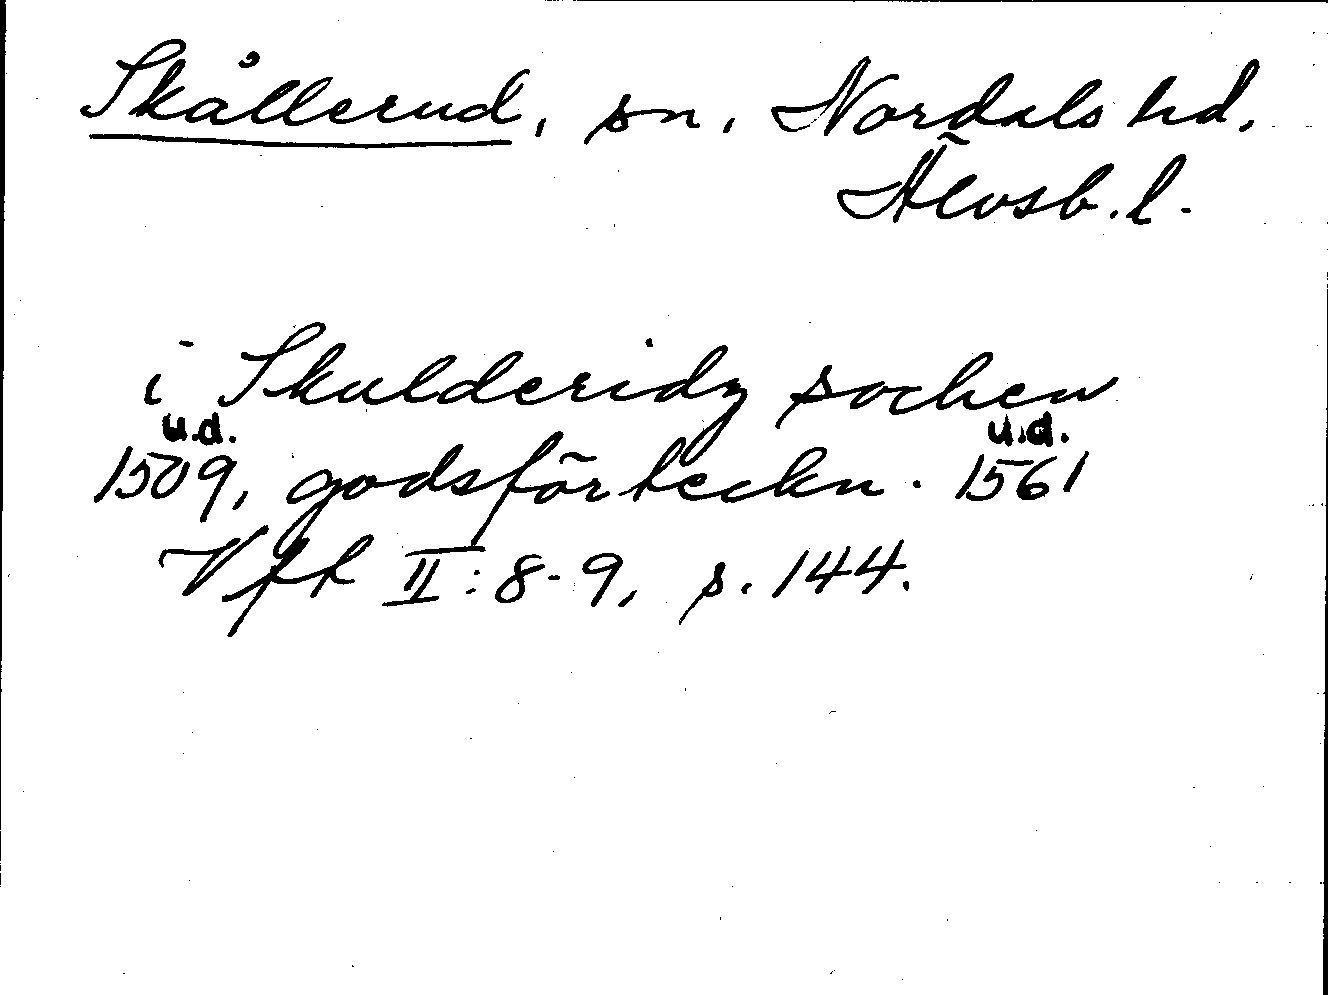 Skållerud, sn, Nordals hd,
Älvsb. l.
i Skulderidz sochen
u.d. u.d.
1509, godsförteckn. 1561
Vfl II: 8-9, s. 144.